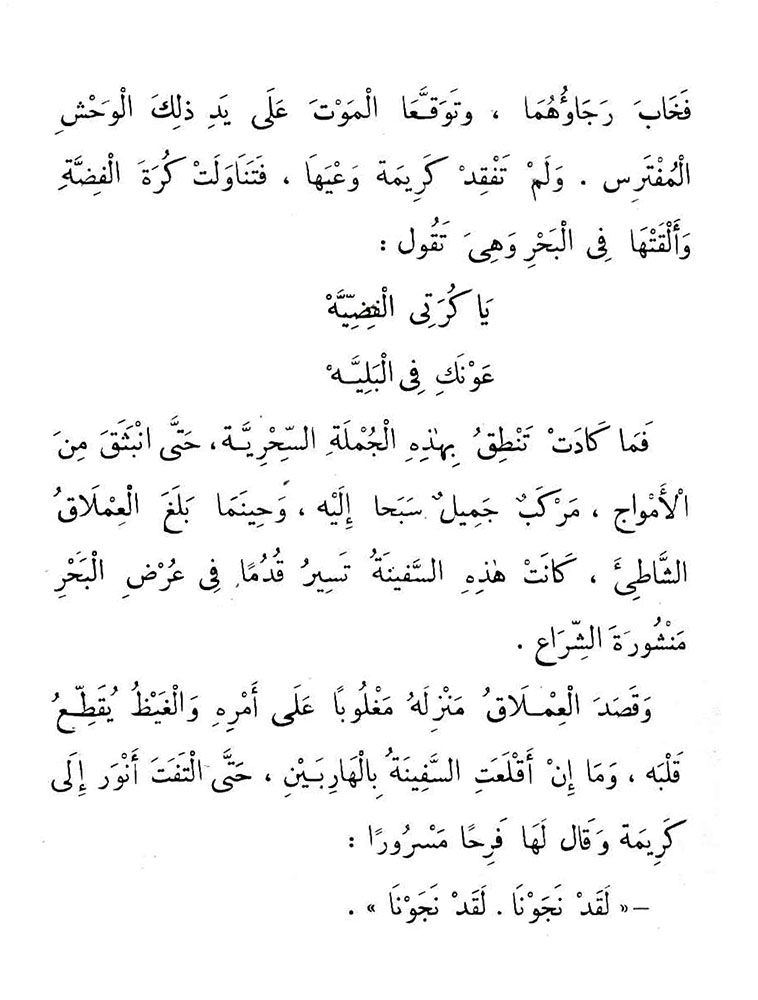 فَخَابَ رَجَاؤُهُمَا ، وتَوَقَّعَا الْمَوْتَ عَلَى يَدِ ذلِكَ الْوَحْشِ
الْمُفْتَرِس . وَلَمْ تَفْقِدْ كَرِيمَة وَعْيَهَا ، فَتَنَاوَلَتْ كُرَةَ الْفِضَّةِ
وَأَلْقَتْهَا فِى الْبَحْرِ وَهِىَ تَقُول :
يَا كُرَتِى الْفِضِّيَّهْ
عَوْنَكِ فِى الْبَلِيَّهْ
فَمَا كَادَتْ تَنْطِقُ بِهٰذِهِ الْجُمْلَةِ السِّحْرِيَّة ، حَتَّى انْبَثَقَ مِنَ
الْأَمْوَاج ، مَرْكَبٌ جَمِيلٌ سَبَحَا إِلَيْه ، وَحِينَمَا بَلَغَ الْعِمْلَاقُ
الشَّاطِئَ ، كَانَتْ هٰذِهِ السَّفِينَةُ تَسِيرُ قُدُمًا فِى عُرْضِ الْبَحْرِ
مَنْشُورَةَ الشِّرَاع .
وَقَصَدَ الْعِمْلَاقُ مَنْزِلَهُ مَغْلُوبًا عَلَى أَمْرِهِ وَالْغَيْظُ يُقَطِّعُ
قَلْبَه ، وَمَا إِنْ أَقْلَعَتِ السَّفِينَةُ بِالْهَارِبَيْنِ ، حَتَّى الْتَفَتَ أَنْوَر إِلَى
كَرِيمَة وَقَال لَهَا فَرِحًا مَسْرُورًا :
–« لَقَدْ نَجَوْنَا . لَقَدْ نَجَوْنَا » .